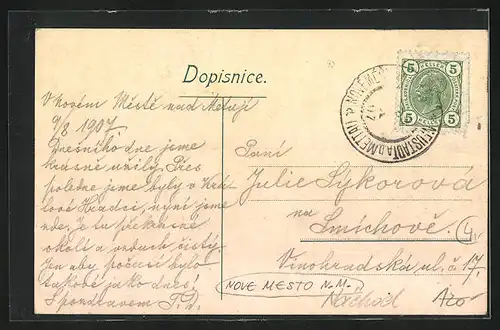 Dopisnice.
V Novém Městě nad Metují
9/8 1907
Dnešního dne jsme
krásně užily. Přes
poledne jsme byly v Král
lové Hradci, nyní jsme
zde. Je tu překrásné
okolí a vzduch čistý.
Jen aby počasí bylo
takové jako dnes.
S pozdravem F. D.
5 HELLER 5
NEUSTADT A.D. METTAU
Paní
Julie Sýkorová
na
Smíchově.
Vinohradská ul. č. 17.
NOVE MESTO N.M.
Náchod